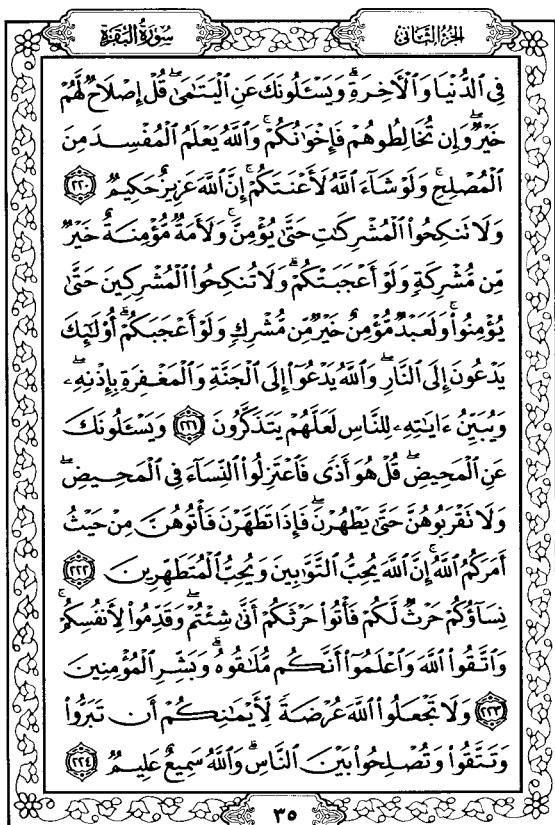 الجزء الثاني
سورة البقرة
فِي الدُّنْيَا وَالْآخِرَةِ ۗ وَيَسْـَٔلُونَكَ عَنِ الْيَتَـٰمَىٰ ۖ قُلْ إِصْلَاحٌ لَّهُمْ
خَيْرٌ ۖ وَإِن تُخَالِطُوهُمْ فَإِخْوَٰنُكُمْ ۚ وَاللَّهُ يَعْلَمُ الْمُفْسِدَ مِنَ
الْمُصْلِحِ ۚ وَلَوْ شَآءَ اللَّهُ لَأَعْنَتَكُمْ ۚ إِنَّ اللَّهَ عَزِيزٌ حَكِيمٌ ﴿٢٢٠﴾
وَلَا تَنكِحُوا الْمُشْرِكَـٰتِ حَتَّىٰ يُؤْمِنَّ ۚ وَلَأَمَةٌ مُّؤْمِنَةٌ خَيْرٌ
مِّن مُّشْرِكَةٍ وَلَوْ أَعْجَبَتْكُمْ ۗ وَلَا تُنكِحُوا الْمُشْرِكِينَ حَتَّىٰ
يُؤْمِنُوا ۚ وَلَعَبْدٌ مُّؤْمِنٌ خَيْرٌ مِّن مُّشْرِكٍ وَلَوْ أَعْجَبَكُمْ ۗ أُو۟لَـٰٓئِكَ
يَدْعُونَ إِلَى النَّارِ ۖ وَاللَّهُ يَدْعُوٓا إِلَى الْجَنَّةِ وَالْمَغْفِرَةِ بِإِذْنِهِۦ ۖ
وَيُبَيِّنُ ءَايَـٰتِهِۦ لِلنَّاسِ لَعَلَّهُمْ يَتَذَكَّرُونَ ﴿٢٢١﴾ وَيَسْـَٔلُونَكَ
عَنِ الْمَحِيضِ ۖ قُلْ هُوَ أَذًى فَاعْتَزِلُوا النِّسَآءَ فِي الْمَحِيضِ ۖ
وَلَا تَقْرَبُوهُنَّ حَتَّىٰ يَطْهُرْنَ ۖ فَإِذَا تَطَهَّرْنَ فَأْتُوهُنَّ مِنْ حَيْثُ
أَمَرَكُمُ اللَّهُ ۚ إِنَّ اللَّهَ يُحِبُّ التَّوَّٰبِينَ وَيُحِبُّ الْمُتَطَهِّرِينَ ﴿٢٢٢﴾
نِسَآؤُكُمْ حَرْثٌ لَّكُمْ فَأْتُوا حَرْثَكُمْ أَنَّىٰ شِئْتُمْ ۖ وَقَدِّمُوا لِأَنفُسِكُمْ ۚ
وَاتَّقُوا اللَّهَ وَاعْلَمُوٓا أَنَّكُم مُّلَـٰقُوهُ ۗ وَبَشِّرِ الْمُؤْمِنِينَ
﴿٢٢٣﴾ وَلَا تَجْعَلُوا اللَّهَ عُرْضَةً لِّأَيْمَـٰنِكُمْ أَن تَبَرُّوا
وَتَتَّقُوا وَتُصْلِحُوا بَيْنَ النَّاسِ ۗ وَاللَّهُ سَمِيعٌ عَلِيمٌ ﴿٢٢٤﴾
٣٥